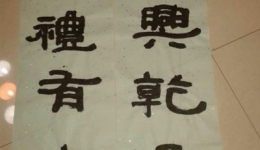 興乾
禮有